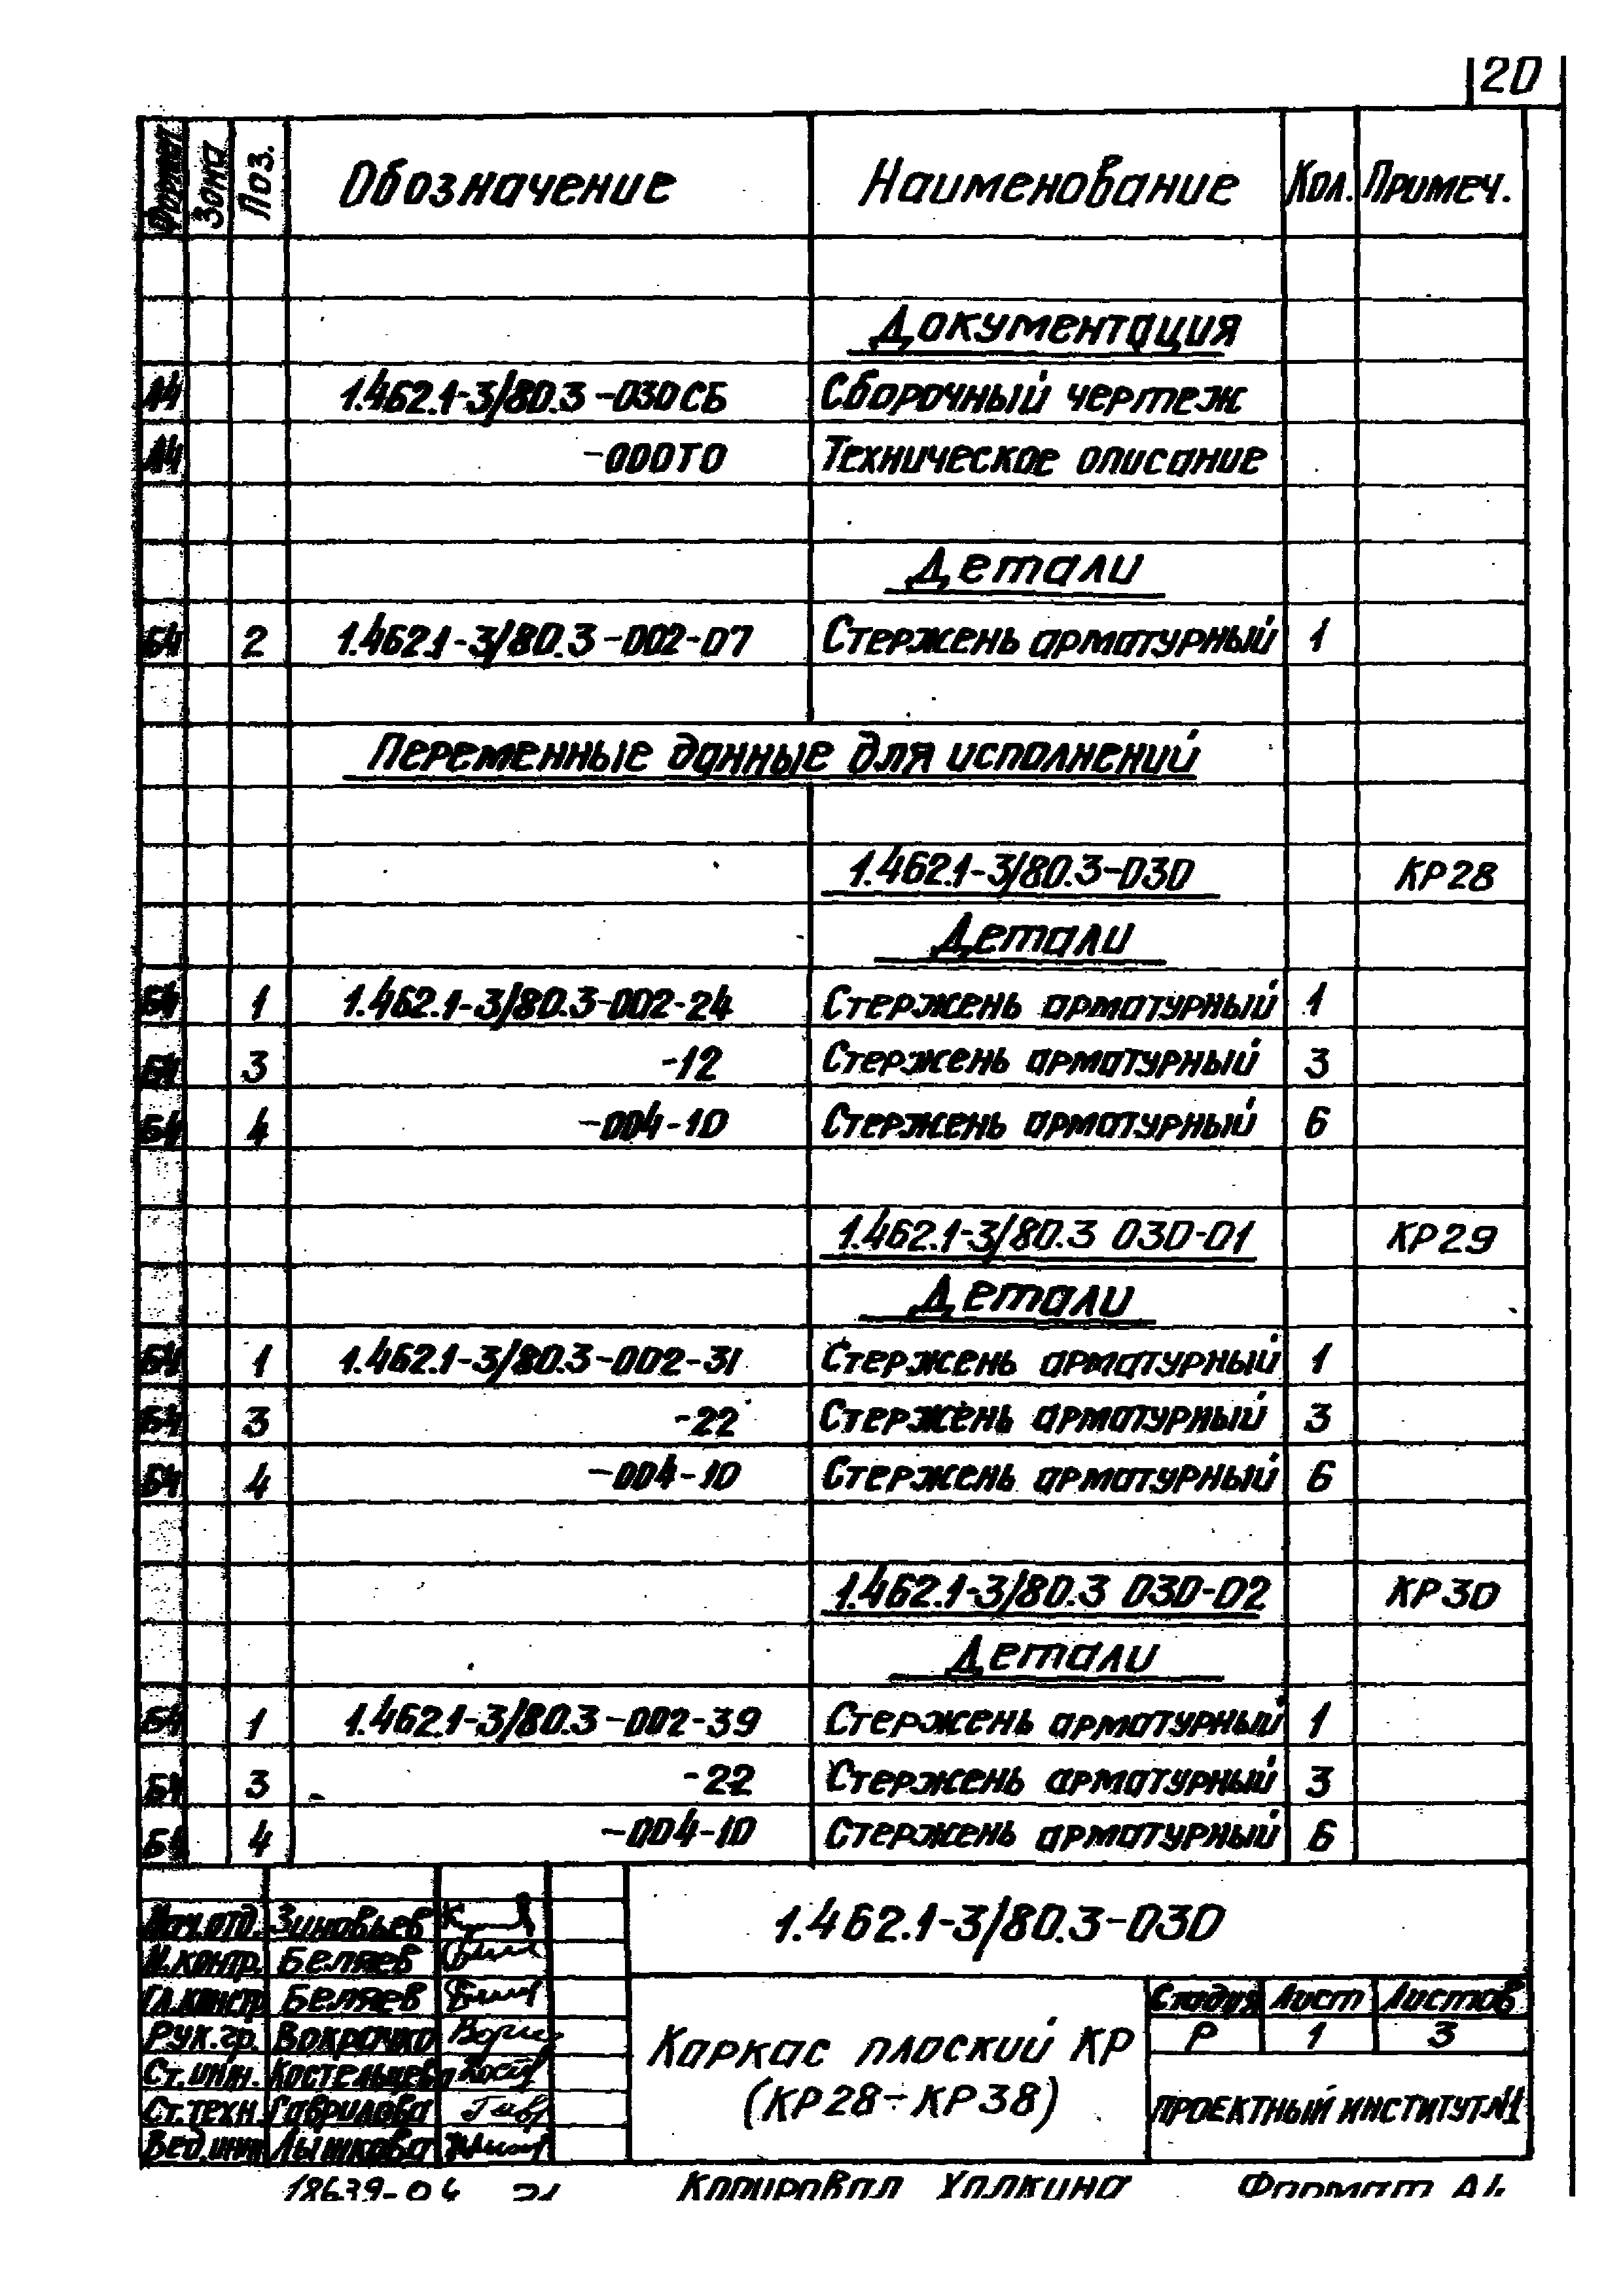 20
Формат Зона Поз. Обозначение Наименование Кол. Примеч.
Документация
А4 1.462.1-3/80.3-030СБ Сборочный чертеж
А4 -000ТО Техническое описание
Детали
Б4 2 1.462.1-3/80.3-002-07 Стержень арматурный 1
Переменные данные для исполнений
1.462.1-3/80.3-030 КР28
Детали
Б4 1 1.462.1-3/80.3-002-24 Стержень арматурный 1
Б4 3 -12 Стержень арматурный 3
Б4 4 -004-10 Стержень арматурный 6
1.462.1-3/80.3 030-01 КР29
Детали
Б4 1 1.462.1-3/80.3-002-31 Стержень арматурный 1
Б4 3 -22 Стержень арматурный 3
Б4 4 -004-10 Стержень арматурный 6
1.462.1-3/80.3 030-02 КР30
Детали
Б4 1 1.462.1-3/80.3-002-39 Стержень арматурный 1
Б4 3 -22 Стержень арматурный 3
Б4 4 -004-10 Стержень арматурный 6
Нач.отд. Зиновьев
Н.контр. Беляев
Гл.констр Беляев
Рук.гр. Вокрачко
Ст.инж. Костельцева
Ст.техн. Гаврилова
Вед.инж Лышкова
1.462.1-3/80.3-030
Каркас плоский КР
(КР28÷КР38)
Стадия Лист Листов
Р 1 3
ПРОЕКТНЫЙ ИНСТИТУТ№1
18639-04 21 Копировал Халкина Формат А4